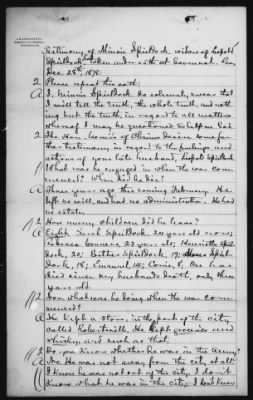 Testimony of Minnie Spielbock, widow of Leopold
Spielbock, taken under oath at Savannah, Ga.
Dec. 28th, 1878.
Q Please repeat this oath:
A I, Minnie Spielbock, do solemnly swear that
I will tell the truth, the whole truth, and noth
ing but the truth, in regard to all matters
whereof I may be questioned so help me God
Q The Hon. Com's of Claims desire some fur-
ther testimony in regard to the feelings and
actions of your late husband, Leopold Spielbock
What was he engaged in when the war com
menced? When did he die?
A Three years ago this coming February. He
left no will, and had no administrator. He had
no estate.
Q How many children did he leave?
A Eight. Sarah Spielbock, 24 years old now;
Rebecca 22 years old; Henrietta Spiel
bock, 20; Esther Spielbock, 19; Moses Spiel-
bock, 16; Emanuel, 14; 8. One has
died since my husband's death, only three
years old.
Q Now what was he doing when the war com
menced?
A He kept a store, in the part of the city
called Robertsville. He kept groceries and
whiskey and such as that.
Q Do you know whether he was in the Army?
A No. He was not away from the city at all.
I know he was not out of the city. I don't
know what he was in the city. I don't know